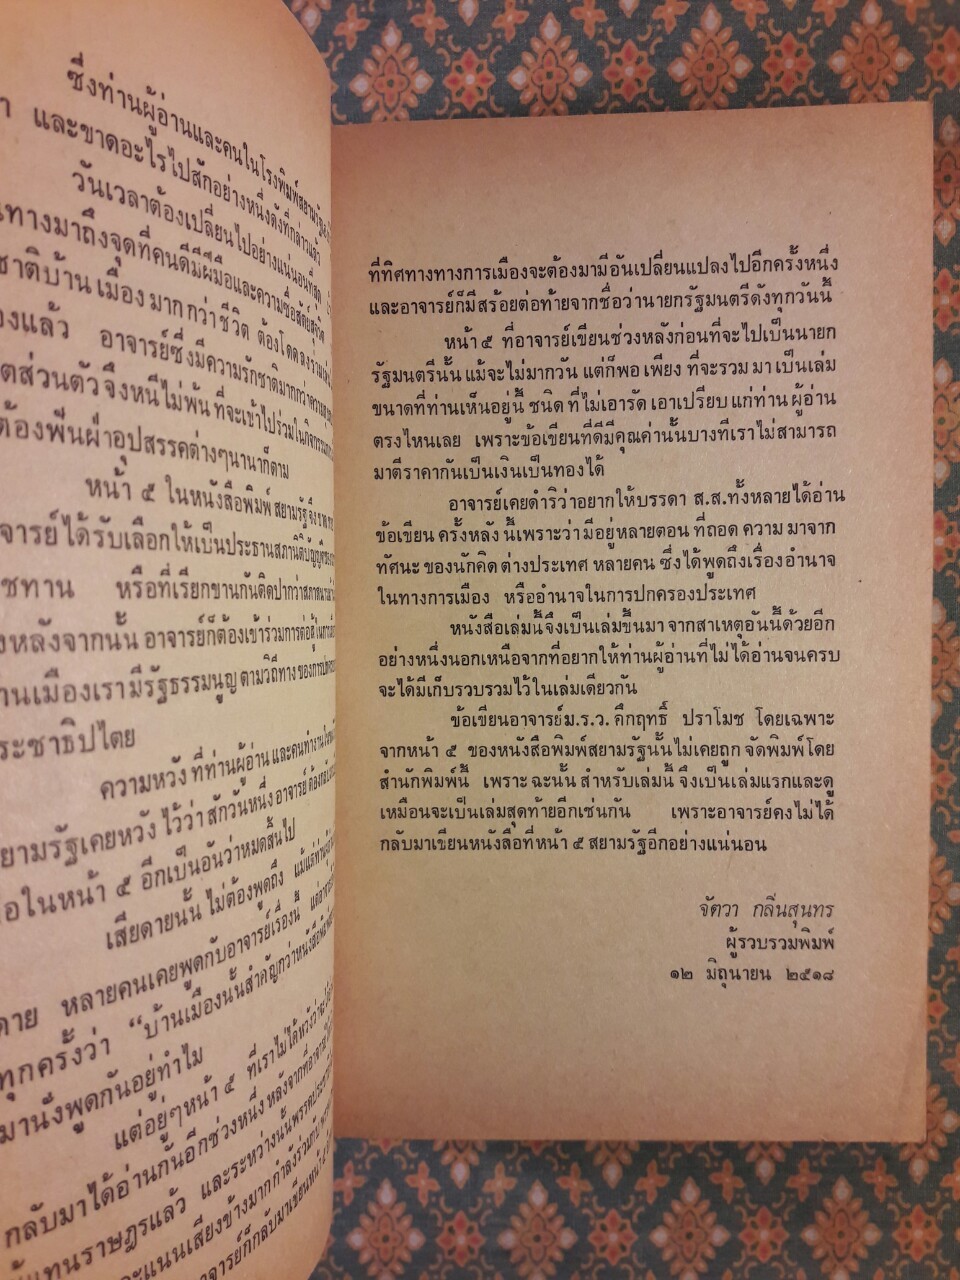 ซึ่งท่านผู้อ่านและคนในโรงพิมพ์สยามรัฐ
และขาดอะไรไปสักอย่างหนึ่งดังที่กล่าวแล้ว
วันเวลาต้องเปลี่ยนไปอย่างแน่นอนที่สุด
ทางมาถึงจุดที่คนดีมีฝีมือและความซื่อสัตย์สุจริต
ชาติบ้านเมืองมากกว่าชีวิต ต้องโดดลงร่วม
แล้ว อาจารย์ซึ่งมีความรักชาติมากกว่าความสุข
ส่วนตัวจึงหนีไม่พ้นที่จะเข้าไปร่วมในกิจกรรม
ต้องฟันฝ่าอุปสรรคต่างๆนานาก็ตาม
หน้า ๕ ในหนังสือพิมพ์สยามรัฐจึง
อาจารย์ได้รับเลือกให้เป็นประธานสภานิติบัญญัติ
หรือที่เรียกขานกันติดปากว่าสภาสนามม้า
หลังจากนั้น อาจารย์ก็ต้องเข้าร่วมการต่อสู้
เมืองเรามีรัฐธรรมนูญตามวิถีทางของการ
ประชาธิปไตย
ความหวังที่ท่านผู้อ่านและคนทำงาน
สยามรัฐเคยหวังไว้ว่าสักวันหนึ่งอาจารย์ต้องกลับ
ในหน้า ๕ อีกเป็นอันว่าหมดสิ้นไป
เสียดายนั้น ไม่ต้องพูดถึง แม้แต่ท่าน
หลายคนเคยพูดกับอาจารย์เรื่องนี้ แต่อาจารย์
ทุกครั้งว่า “บ้านเมืองนั้นสำคัญกว่าหนังสือพิมพ์
มานั่งพูดกันอยู่ทำไม
แต่อยู่ๆหน้า ๕ ที่เราไม่ได้หวังว่าจะได้
กลับมาได้อ่านกันอีกช่วงหนึ่ง หลังจากที่อาจารย์
แทนราษฎรแล้ว และระหว่างนั้นพรรคประชา
คะแนนเสียงข้างมากกำลังร่วมกับ
อาจารย์ก็กลับมาเขียนหน้า ๕
ที่ทิศทางทางการเมืองจะต้องมามีอันเปลี่ยนแปลงไปอีกครั้งหนึ่ง
และอาจารย์ก็มีสร้อยต่อท้ายจากชื่อว่านายกรัฐมนตรีดังทุกวันนี้
หน้า ๕ ที่อาจารย์เขียนช่วงหลังก่อนที่จะไปเป็นนายก
รัฐมนตรีนั้น แม้จะไม่มากวัน แต่ก็พอเพียงที่จะรวมมาเป็นเล่ม
ขนาดที่ท่านเห็นอยู่นี้ ชนิดที่ไม่เอารัดเอาเปรียบแก่ท่านผู้อ่าน
ตรงไหนเลย เพราะข้อเขียนที่ดีมีคุณค่านั้นบางทีเราไม่สามารถ
มาตีราคากันเป็นเงินเป็นทองได้
อาจารย์เคยดำริว่าอยากให้บรรดา ส.ส.ทั้งหลายได้อ่าน
ข้อเขียนครั้งหลังนี้เพราะว่ามีอยู่หลายตอนที่ถอดความมาจาก
ทัศนะของนักคิดต่างประเทศหลายคน ซึ่งได้พูดถึงเรื่องอำนาจ
ในทางการเมือง หรืออำนาจในการปกครองประเทศ
หนังสือเล่มนี้จึงเป็นเล่มขึ้นมาจากสาเหตุอันนี้ด้วยอีก
อย่างหนึ่งนอกเหนือจากที่อยากให้ท่านผู้อ่านที่ไม่ได้อ่านจนครบ
จะได้มีเก็บรวบรวมไว้ในเล่มเดียวกัน
ข้อเขียนอาจารย์ม.ร.ว. คึกฤทธิ์ ปราโมช โดยเฉพาะ
จากหน้า ๕ ของหนังสือพิมพ์สยามรัฐนั้นไม่เคยถูกจัดพิมพ์โดย
สำนักพิมพ์นี้ เพราะฉะนั้นสำหรับเล่มนี้จึงเป็นเล่มแรกและดู
เหมือนจะเป็นเล่มสุดท้ายอีกเช่นกัน เพราะอาจารย์คงไม่ได้
กลับมาเขียนหนังสือที่หน้า ๕ สยามรัฐอีกอย่างแน่นอน
จัตวา กลิ่นสุนทร
ผู้รวบรวมพิมพ์
๑๒ มิถุนายน ๒๕๑๘